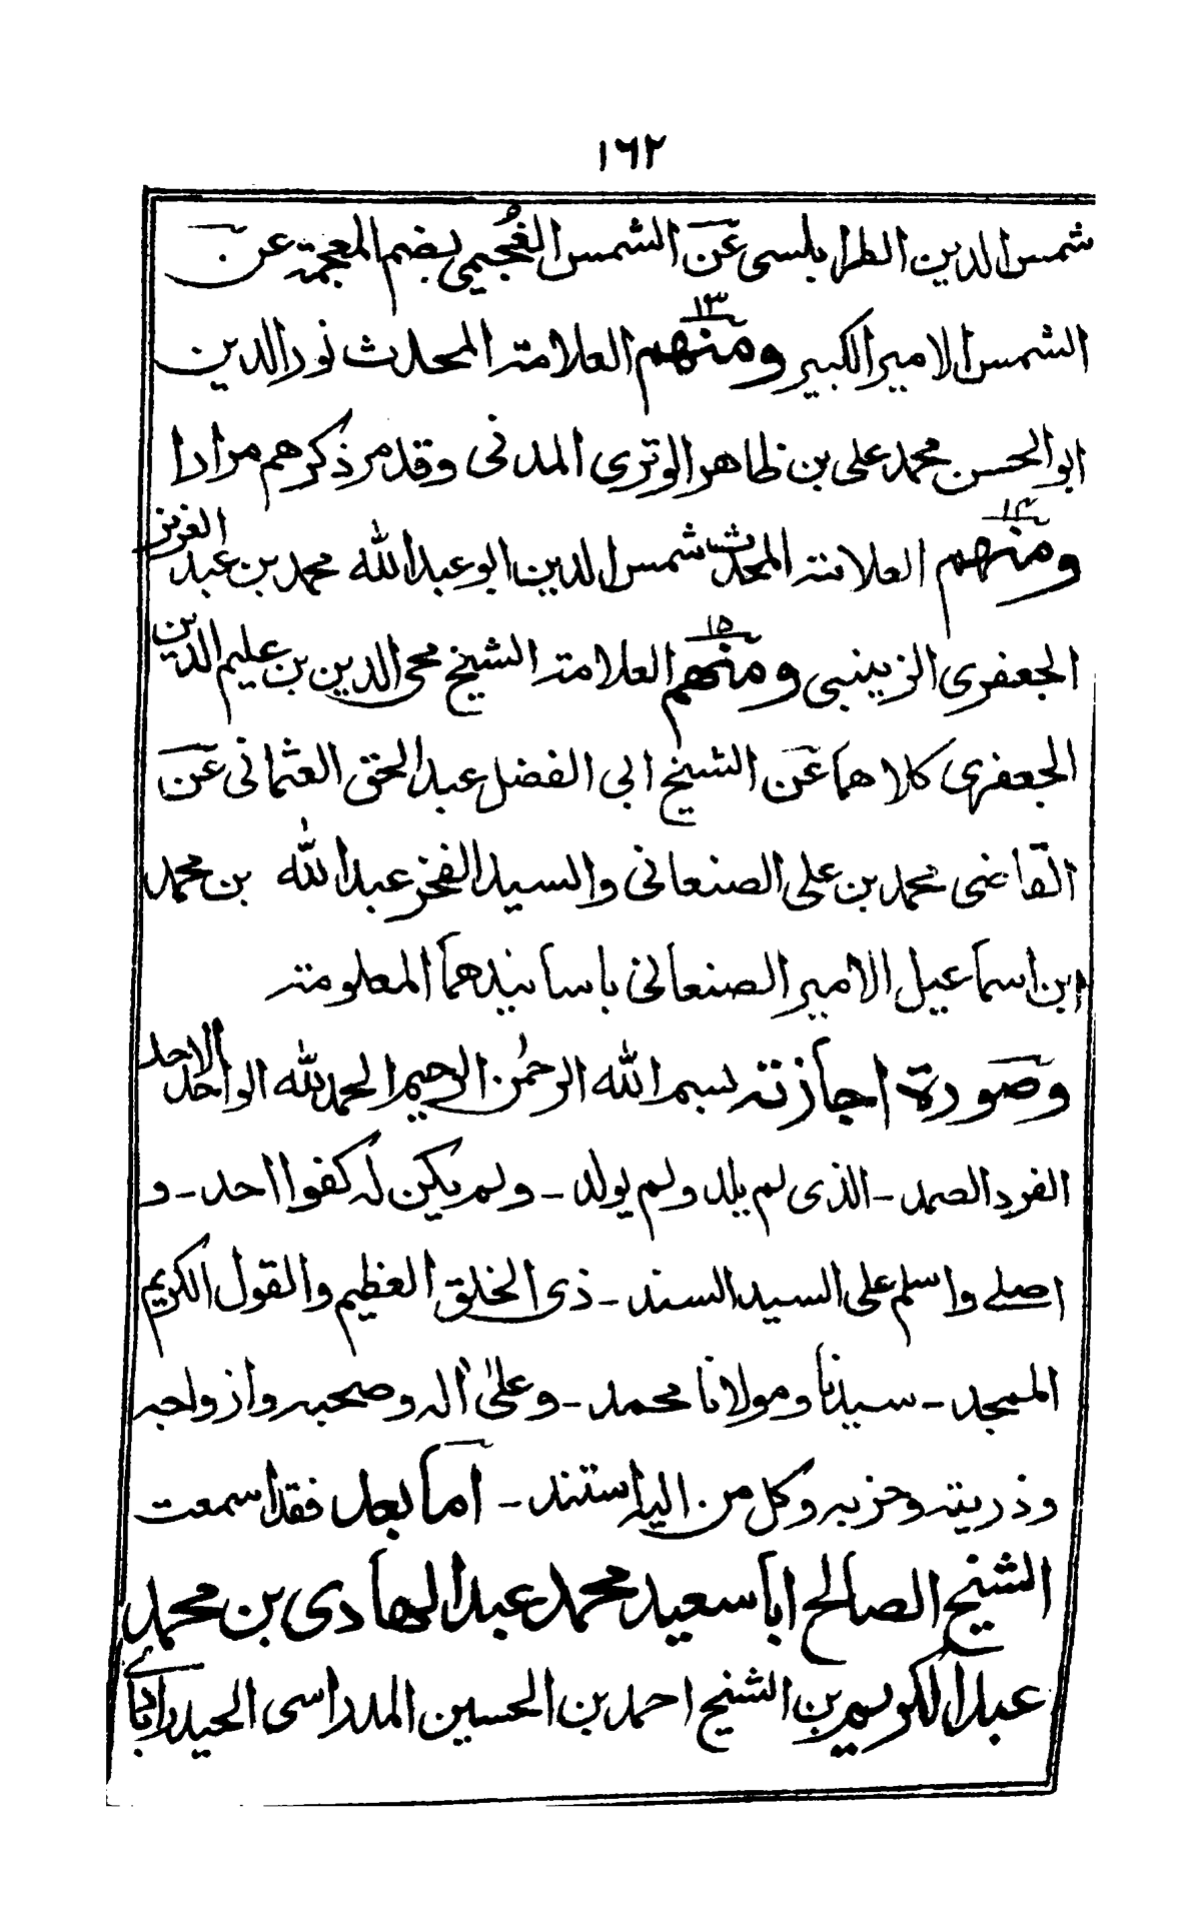 ١٦٢
شمس الدين الطرابلسى عَن الشمس الغُجيمي بضم المعجمة عن
الشمس الامير الكبير ومنهم ١٣ العلامة المحدث نور الدين
ابو الحسن محمد على بن ظاهر الوترى المدنى وقد مر ذكرهم مرارا
ومنهم ١٤ العلامة المحدث شمس الدين ابو عبد الله محمد بن عبد العزيز
الجعفرى الزينبى ومنهم ١٥ العلامة الشيخ محى الدين بن عليم الدين
الجعفرى كلاهما عَن الشيخ ابى الفضل عبد الحق العثمانى عَن
القاضى محمد بن على الصنعانى والسيد الفخر عبد الله بن محمد
ابن اسماعيل الامير الصنعانى باسانيدهما المعلومة
وصورة اجازته بسم الله الرحمٰن الرحيم الحمد لله الواحد الاحد
الفرد الصمد - الذى لم يلد ولم يولد - ولم يكن له كفوا احد - و
اصلے واسلم على السيد السند - ذى الخلق العظيم والقول الكريم
الممجد - سيدنا ومولانا محمد - وعلىٰ اٰله وصحبه وازواجه
وذريته وحزبه وكل من اليه استند - اما بعد فقد اسمعت
الشيخ الصالح ابا سعيد محمد عبد الهادى بن محمد
عبد الكريم بن الشيخ احمد بن الحسين المدراسى الحيدرابادے